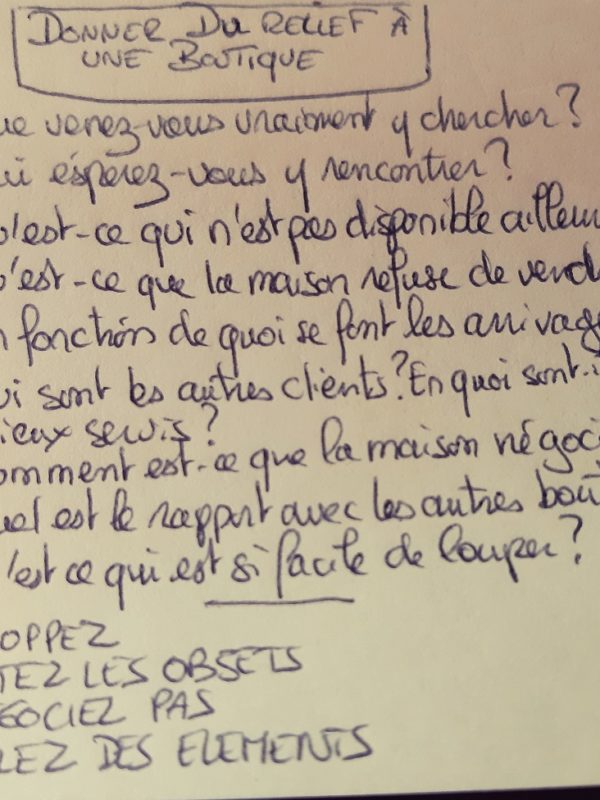 DONNER DU RELIEF À
UNE BOUTIQUE
ue venez-vous vraiment y chercher?
ui éspérez-vous y rencontrer?
u'est-ce qui n'est pas disponible ailleu
u'est-ce que la maison refuse de vend
n fonction de quoi se font les arrivage
ui sont les autres clients? En quoi sont-i
ieux servis?
omment est-ce que la maison négoci
uel est le rapport avec les autres bout
'est ce qui est si facile de louper?
OPPEZ
TEZ LES OBJETS
GOCIEZ PAS
LEZ DES ELEMENTS